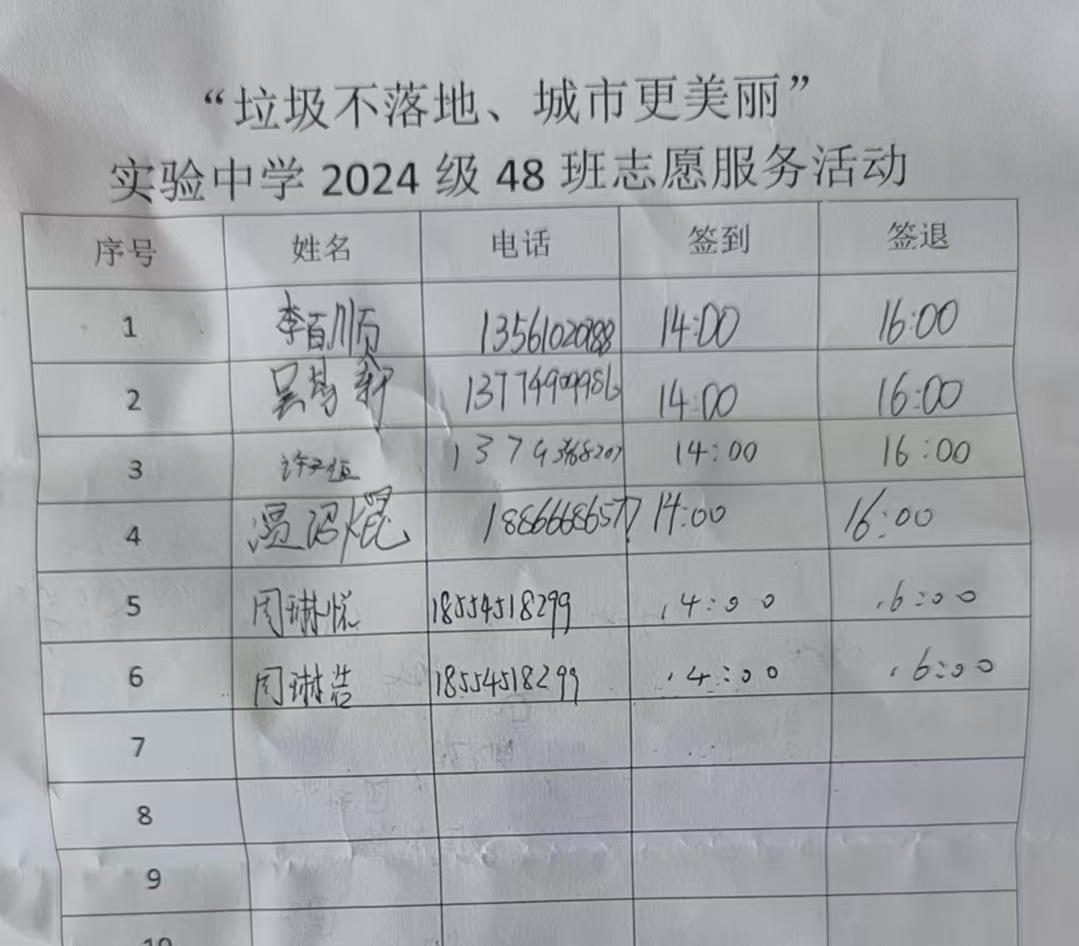 “垃圾不落地、城市更美丽”
实验中学 2024 级 48 班志愿服务活动
序号 姓名 电话 签到 签退
1 李百顺 14:00 16:00
2 14:00 16:00
3 14:00 16:00
4 14:00 16:00
5 周琳悦 18554518299 14:00 16:00
6 周琳浩 18554518299 14:00 16:00
7
8
9
10